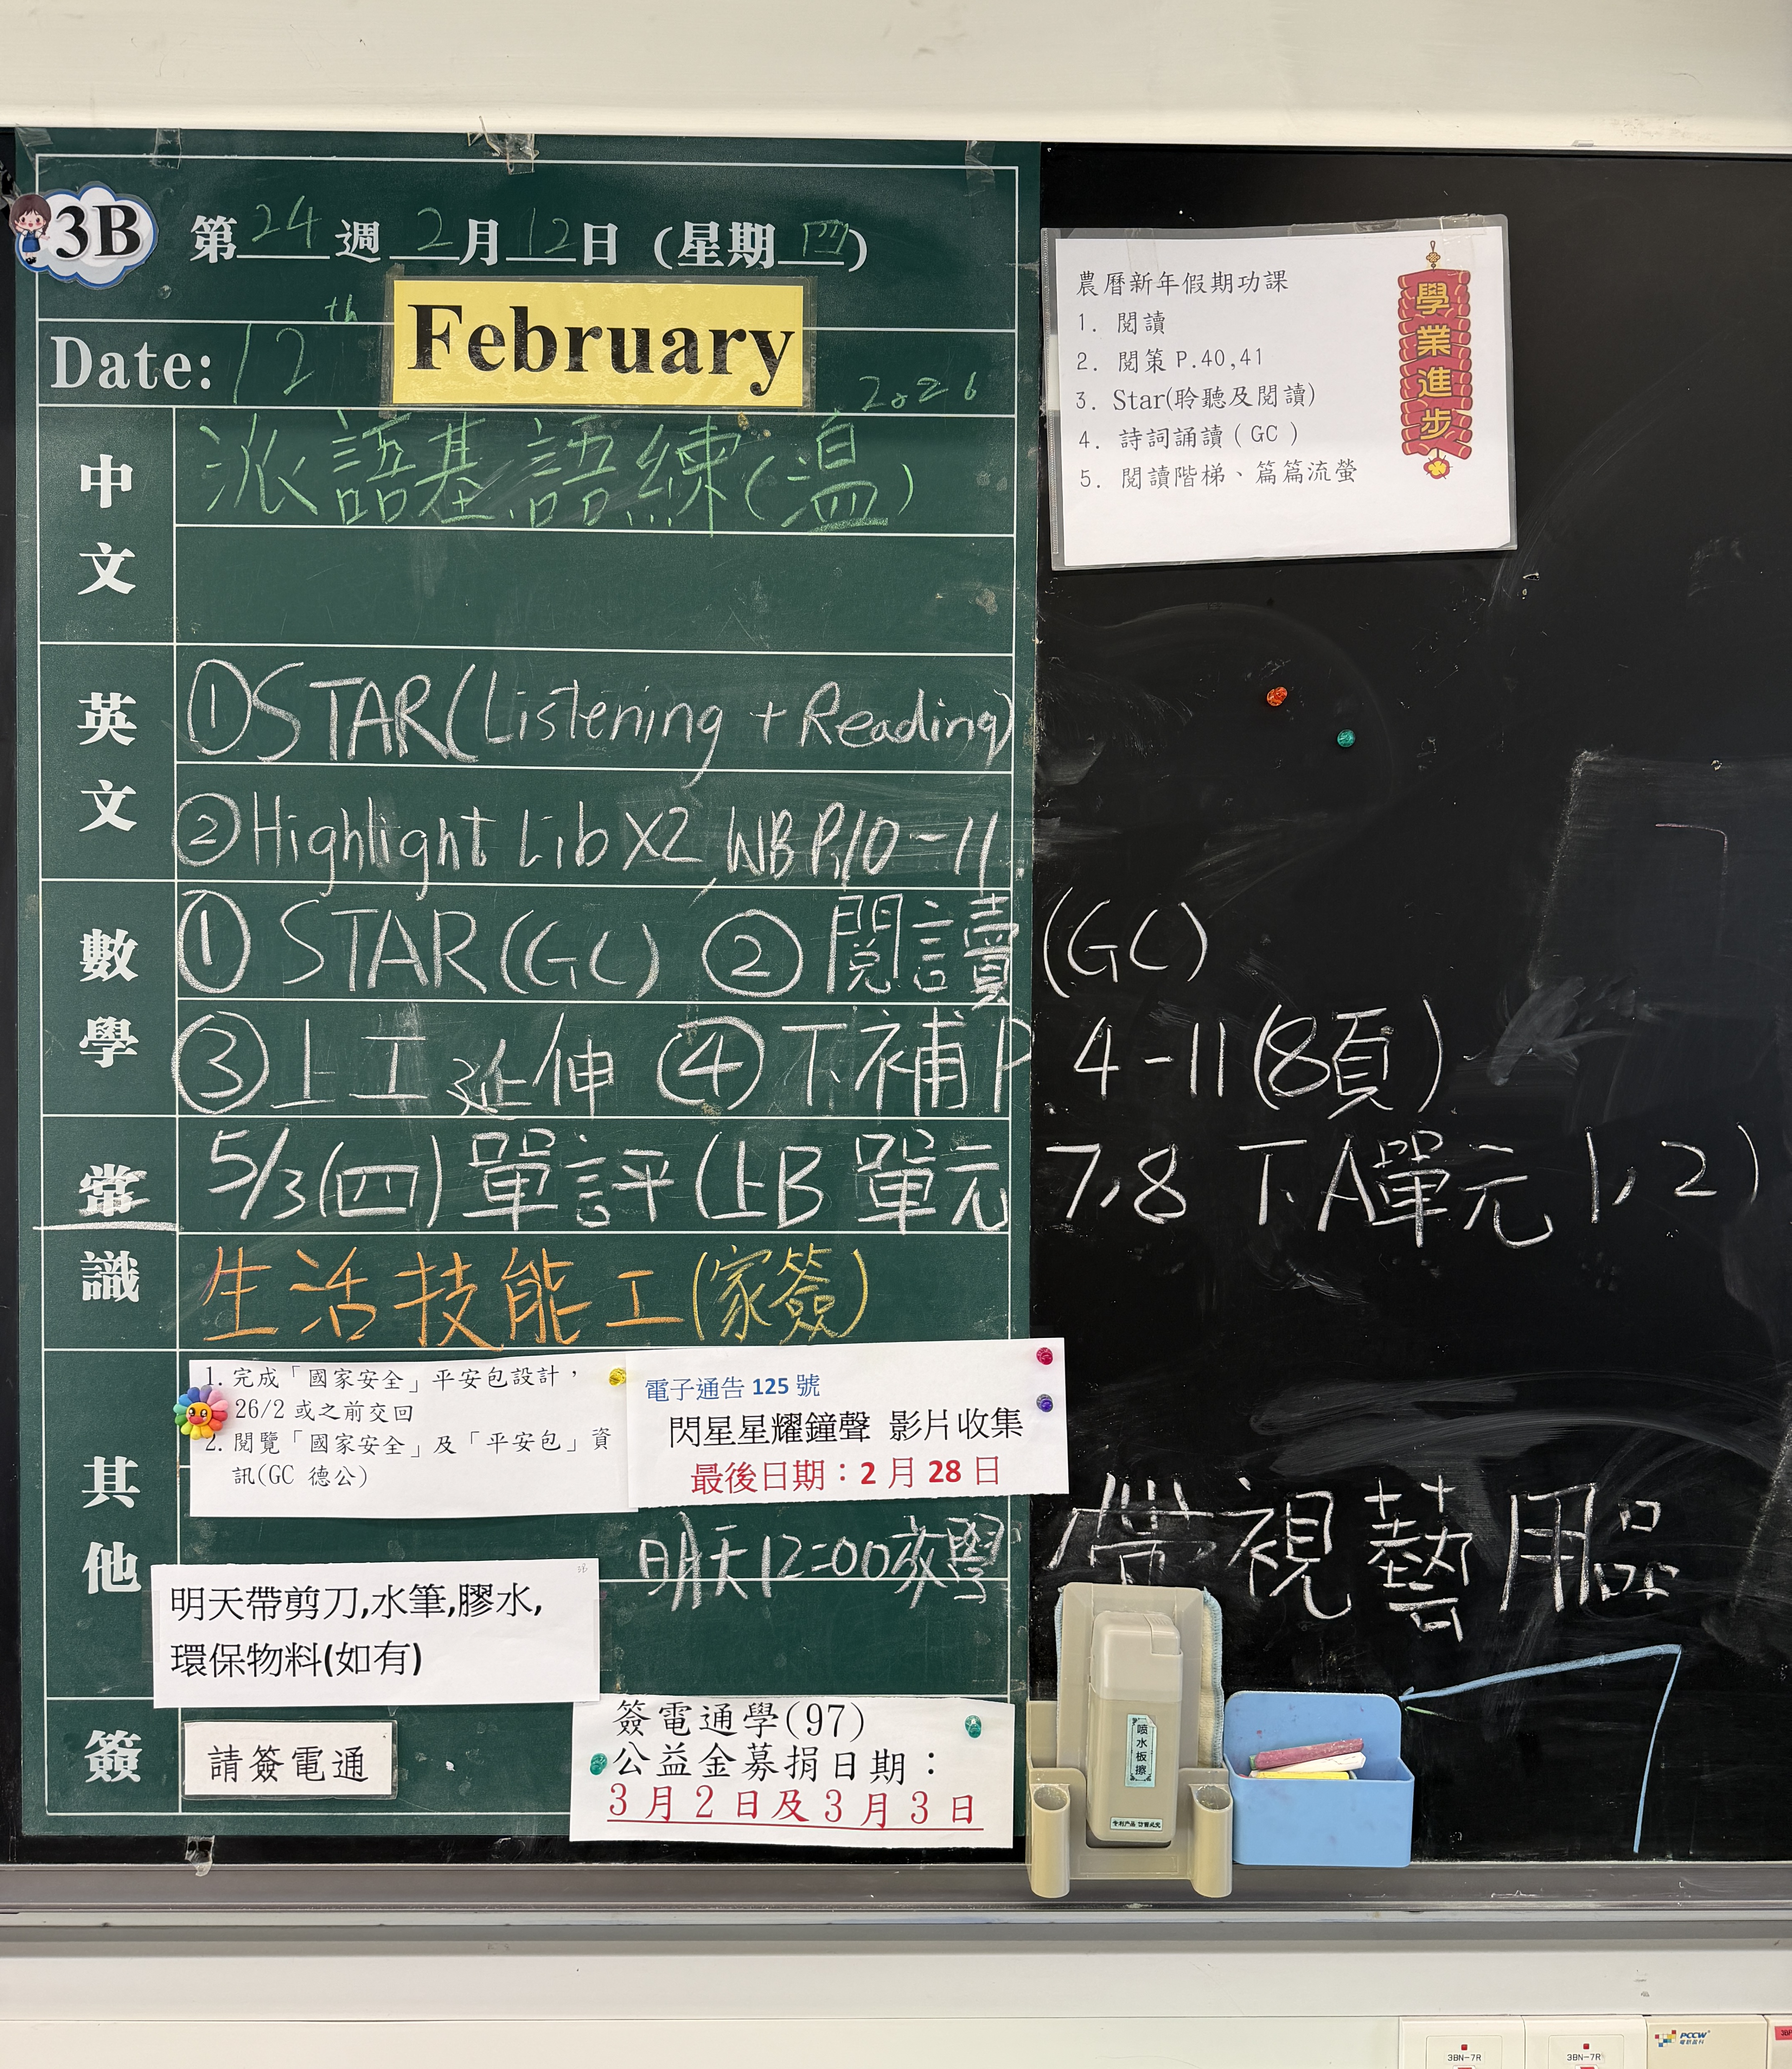 3B
第24週 2月12日 (星期四)
Date: 12th February 2026
中文
派語基.語練(溫)
英文
①STAR(Listening + Reading)
②Highlight Lib X2, WB P.10-11.
數學
① STAR(GC) ② 閱讀(GC)
③上工延伸 ④下補P 4-11(8頁)
常識
5/3(四)單評(上B 單元 7,8 下A單元 1,2)
生活技能工(家簽)
其他
1. 完成「國家安全」平安包設計，
26/2 或之前交回
2. 閱覽「國家安全」及「平安包」資
訊(GC 德公)
電子通告 125 號
閃星星耀鐘聲 影片收集
最後日期：2 月 28 日
明天12:00放學 帶視藝用品
3B
明天帶剪刀,水筆,膠水,
環保物料(如有)
簽
請簽電通
簽電通學(97)
公益金募捐日期：
3月2日及3月3日
農曆新年假期功課
1. 閱讀
2. 閱策 P.40,41
3. Star(聆聽及閱讀)
4. 詩詞誦讀 ( GC )
5. 閱讀階梯、篇篇流螢
學業進步
喷水板擦
专利产品 仿冒必究
3BN-7R
3BN-7R
PCCW
電訊盈科